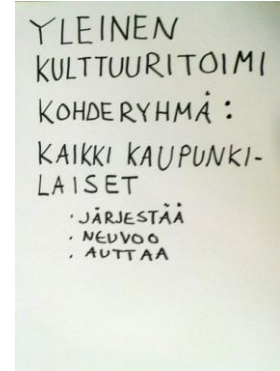 YLEINEN
KULTTUURITOIMI
KOHDERYHMÄ:
KAIKKI KAUPUNKI-
LAISET
· JÄRJESTÄÄ
· NEUVOO
· AUTTAA